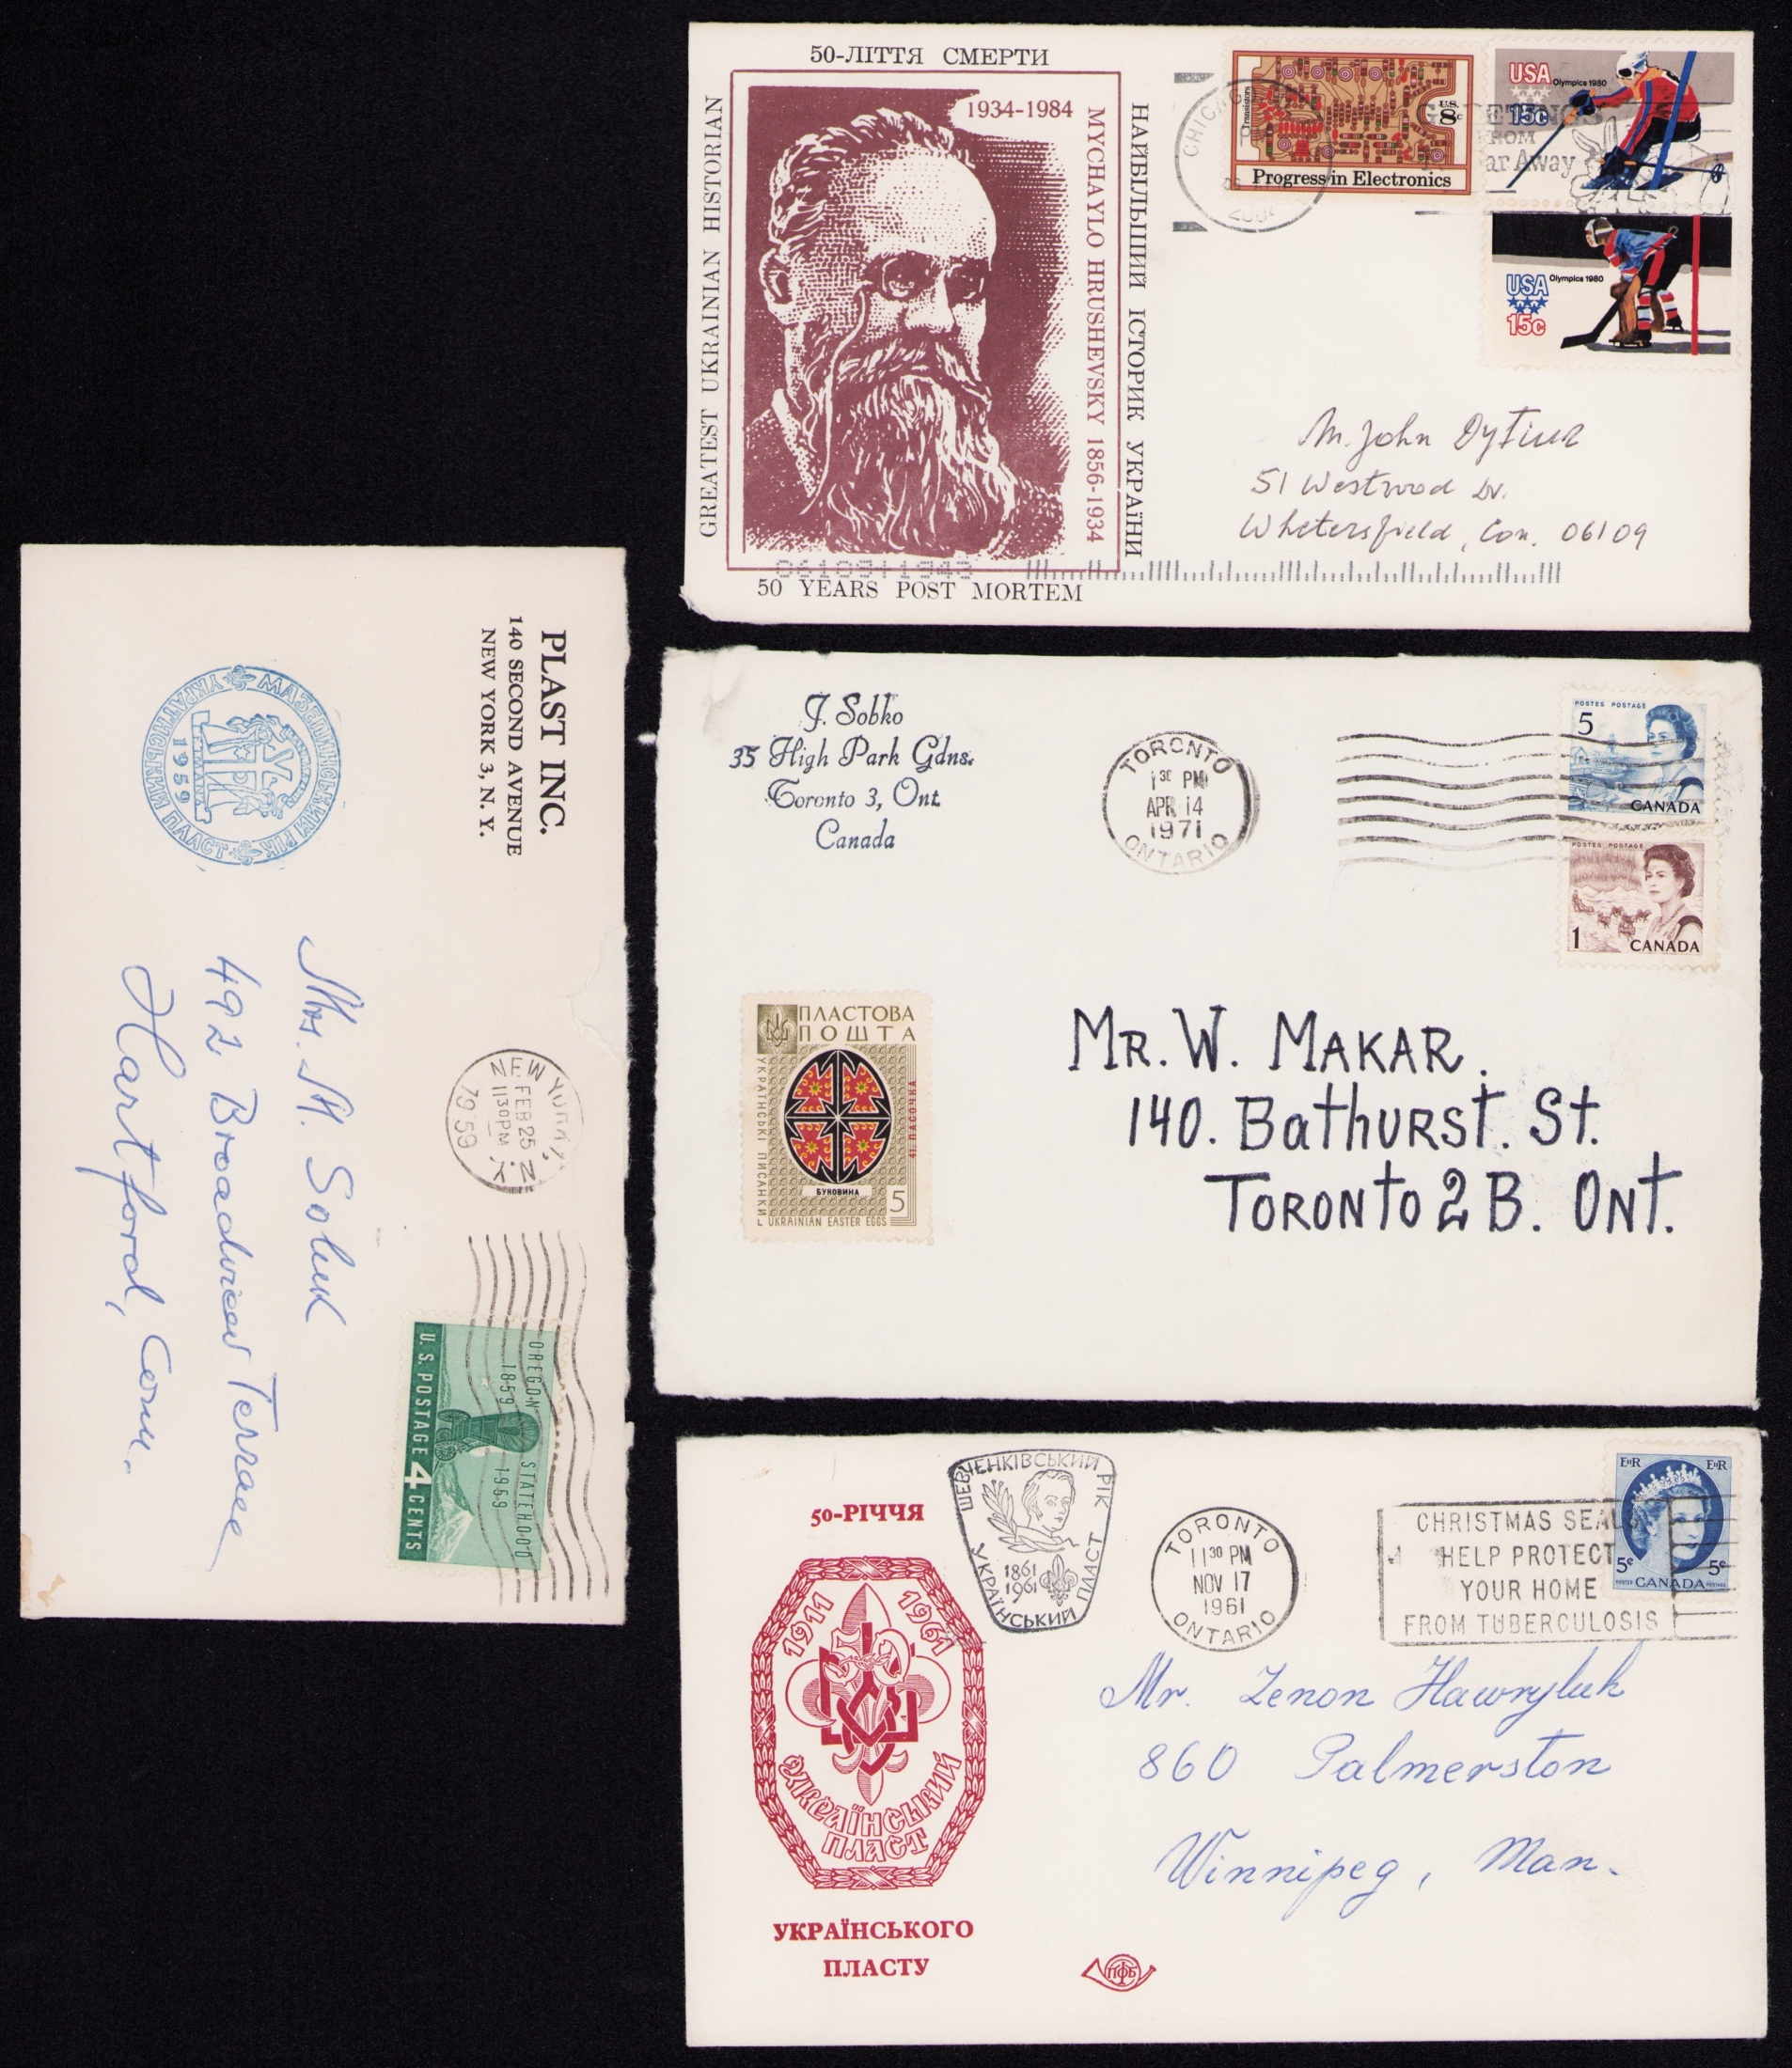 50-ЛІТТЯ СМЕРТИ
GREATEST UKRAINIAN HISTORIAN
1934-1984
MYCHAYLO HRUSHEVSKY 1856-1934
НАЙБІЛЬШИЙ ІСТОРИК УКРАЇНИ
50 YEARS POST MORTEM
CHICAG
Transistors
U.S.
8c
Progress in Electronics
USA
Olympics 1980
15c
GREETINGS
FROM
ar Away
USA
Olympics 1980
15c
M. John
51 Westwood Dr.
Whetersfield, Con. 06109
PLAST INC.
140 SECOND AVENUE
NEW YORK 3, N. Y.
МАЗЕПИНСЬКИЙ РІК
УКРАЇНСЬКИЙ ПЛАСТ
1959
NEW YORK, N.Y.
FEB 25
11 30 PM
1959
OREGON STATEHOOD
1859 1959
U.S. POSTAGE 4 CENTS
Mrs. M.
492 Broadview Terrace
Hartford, Conn.
J. Sobko
35 High Park Gdns.
Toronto 3, Ont
Canada
TORONTO
1 30 PM
APR 14
1971
ONTARIO
POSTES POSTAGE
5
CANADA
POSTES POSTAGE
1
CANADA
ПЛАСТОВА
ПОШТА
УКРАЇНСЬКІ ПИСАНКИ
БУКОВИНА
5
UKRAINIAN EASTER EGGS
MR. W. MAKAR.
140. BATHURST. ST.
TORONTO 2 B. ONT.
50-РІЧЧЯ
1911 1961
УКРАЇНСЬКИЙ
ПЛАСТ
УКРАЇНСЬКОГО
ПЛАСТУ
ШЕВЧЕНКІВСЬКИЙ РІК
1861
1961
УКРАЇНСЬКИЙ ПЛАСТ
TORONTO
11 30 PM
NOV 17
1961
ONTARIO
CHRISTMAS SEALS
HELP PROTECT
YOUR HOME
FROM TUBERCULOSIS
EIIR EIIR
5c 5c
POSTES CANADA POSTAGE
Mr. Zenon Hawryluk
860 Palmerston
Winnipeg, Man.
ПФБ